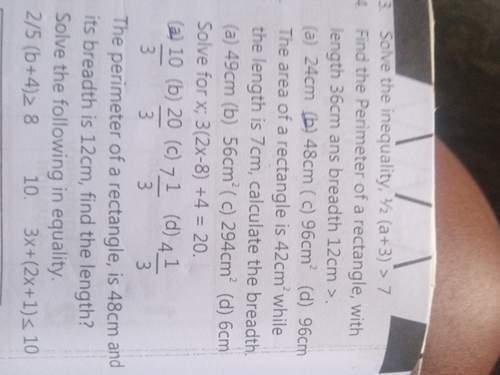 3. Solve the inequality, ½ (a+3) > 7
4. Find the Perimeter of a rectangle, with
length 36cm ans breadth 12cm >.
(a) 24cm (b) 48cm ( c) 96cm² (d) 96cm
The area of a rectangle is 42cm² while
the length is 7cm, calculate the breadth
(a) 49cm (b) 56cm² ( c) 294cm² (d) 6cm
Solve for x; 3(2x-8) +4 = 20.
(a) 10 (b) 20 (c) 7 1 (d) 4 1
3 3 3 3
The perimeter of a rectangle, is 48cm and
its breadth is 12cm, find the length?
Solve the following in equality.
2/5 (b+4)≥ 8 10. 3x+(2x+1)≤ 10